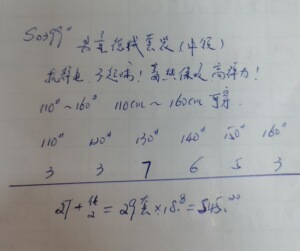 S0399#
男童德绒套装(中领)
抗静电 不起球! 高热保暖 高弹力!
110#~160# 110cm~160cm 可穿
110# 120# 130# 140# 150# 160#
3 3 7 6 5 3
27+2=29套×18.8=545.00